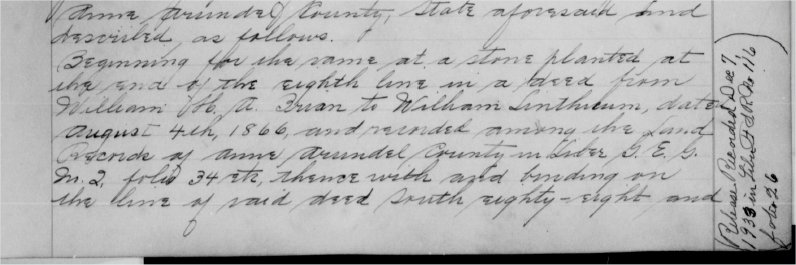 Anne Arundel County, State aforesaid and
described as follows.
Beginning for the same at a stone planted at
the end of the eighth line in a deed from
William H. A. to William Linthicum, dated
August 4th, 1866, and recorded among the Land
Records of Anne Arundel County in Liber G. E. G.
No. 2, folio 34 etc, thence with and binding on
the line of said deed South eighty-eight and
Release Recorded Dec 7,
1933 in Liber No 116
folio 26